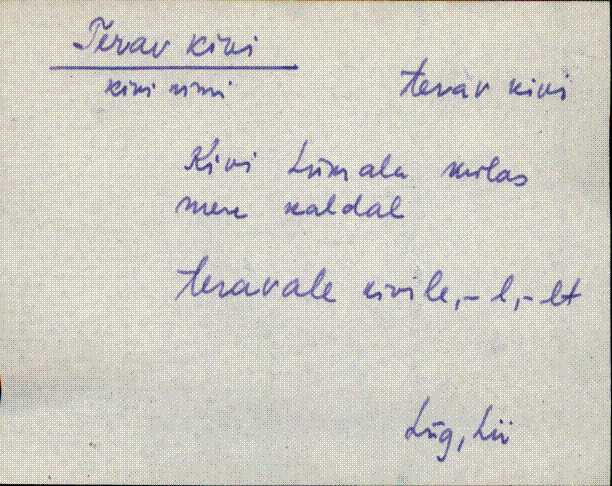 Terav kivi
kivi nimi
terav kivi
Kivi Liimala külas
mere kaldal
teravale kivile, -l, -lt
Lüg, Lii